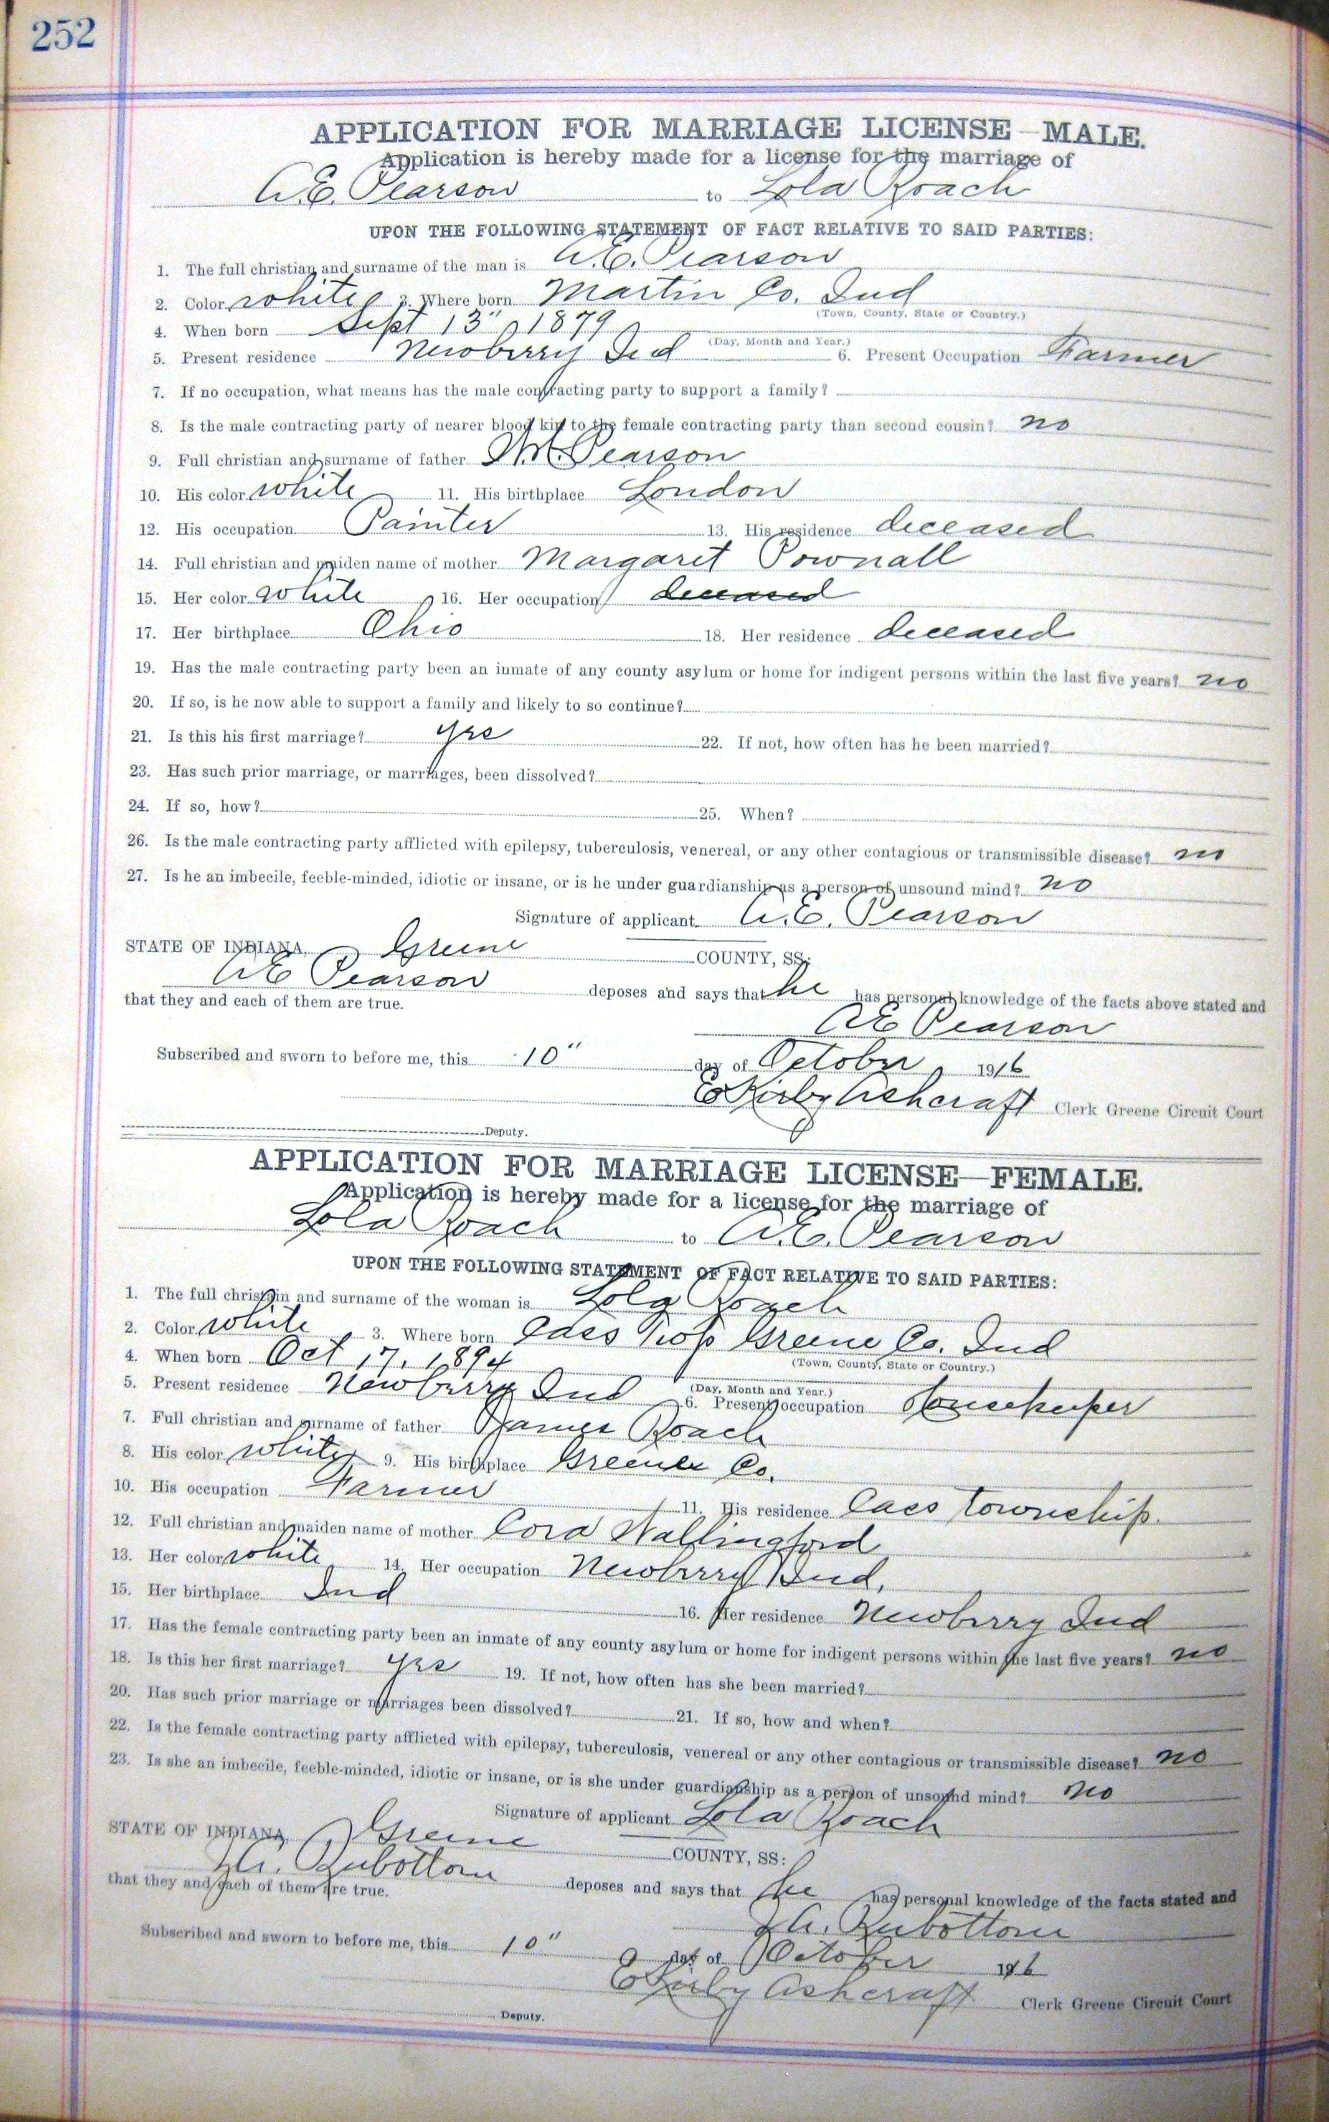 252
APPLICATION FOR MARRIAGE LICENSE—MALE.
Application is hereby made for a license for the marriage of
A. E. Pearson to Lola Roach
UPON THE FOLLOWING STATEMENT OF FACT RELATIVE TO SAID PARTIES:
1. The full christian and surname of the man is A. E. Pearson
2. Color white 3. Where born Martin Co. Ind
(Town, County, State or Country.)
4. When born Sept 13" 1879
(Day, Month and Year.)
5. Present residence Newberry Ind 6. Present Occupation Farmer
7. If no occupation, what means has the male contracting party to support a family?
8. Is the male contracting party of nearer blood kin to the female contracting party than second cousin? no
9. Full christian and surname of father Pearson
10. His color white 11. His birthplace London
12. His occupation Painter 13. His residence deceased
14. Full christian and maiden name of mother Margaret Pownall
15. Her color white 16. Her occupation deceased
17. Her birthplace Ohio 18. Her residence deceased
19. Has the male contracting party been an inmate of any county asylum or home for indigent persons within the last five years? no
20. If so, is he now able to support a family and likely to so continue?
21. Is this his first marriage? yes 22. If not, how often has he been married?
23. Has such prior marriage, or marriages, been dissolved?
24. If so, how? 25. When?
26. Is the male contracting party afflicted with epilepsy, tuberculosis, venereal, or any other contagious or transmissible disease? no
27. Is he an imbecile, feeble-minded, idiotic or insane, or is he under guardianship as a person of unsound mind? no
Signature of applicant A. E. Pearson
STATE OF INDIANA, Greene COUNTY, SS:
A E Pearson deposes and says that he has personal knowledge of the facts above stated and
that they and each of them are true.
A E Pearson
Subscribed and sworn to before me, this 10" day of October 1916
E Kirby Ashcraft Clerk Greene Circuit Court
Deputy.
APPLICATION FOR MARRIAGE LICENSE—FEMALE.
Application is hereby made for a license for the marriage of
Lola Roach to A. E. Pearson
UPON THE FOLLOWING STATEMENT OF FACT RELATIVE TO SAID PARTIES:
1. The full christain and surname of the woman is Lola Roach
2. Color white 3. Where born Cass Twp Greene Co. Ind
(Town, County, State or Country.)
4. When born Oct 17, 1894
(Day, Month and Year.)
5. Present residence Newberry Ind 6. Present occupation Housekeeper
7. Full christian and surname of father James Roach
8. His color white 9. His birthplace Greene Co.
10. His occupation Farmer 11. His residence Cass township.
12. Full christian and maiden name of mother Cora Wallingford
13. Her color white 14. Her occupation Newberry Ind,
15. Her birthplace Ind 16. Her residence Newberry Ind
17. Has the female contracting party been an inmate of any county asylum or home for indigent persons within the last five years? no
18. Is this her first marriage? yes 19. If not, how often has she been married?
20. Has such prior marriage or marriages been dissolved? 21. If so, how and when?
22. Is the female contracting party afflicted with epilepsy, tuberculosis, venereal or any other contagious or transmissible disease? no
23. Is she an imbecile, feeble-minded, idiotic or insane, or is she under guardianship as a person of unsound mind? no
Signature of applicant Lola Roach
STATE OF INDIANA, Greene COUNTY, SS:
Rubottom deposes and says that he has personal knowledge of the facts stated and
that they and each of them are true.
Rubottom
Subscribed and sworn to before me, this 10" day of October 1916
E Kirby Ashcraft Clerk Greene Circuit Court
Deputy.